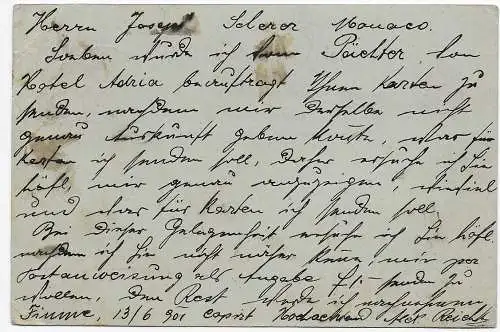 Herrn Josef Scherer Monaco.
Soeben wurde ich vom Pächter von
Hotel Adria beauftragt Ihnen Karten zu
senden, nachdem mir derselbe nicht
genau Auskunft geben konte, was für
Karten ich senden soll, daher ersuche ich Sie
höfl, mir genau anzuzeigen, wieviel
und was für Karten ich senden soll
Bei dieser Gelegenheit ersuche ich Sie höfl
nachdem ich Sie nicht näher kenn mir per
Postanweisung als Angabe f 1.- senden zu
wollen, den Rest werde ich nachnehmen
Fiume, 13/6 901 Hochachtend